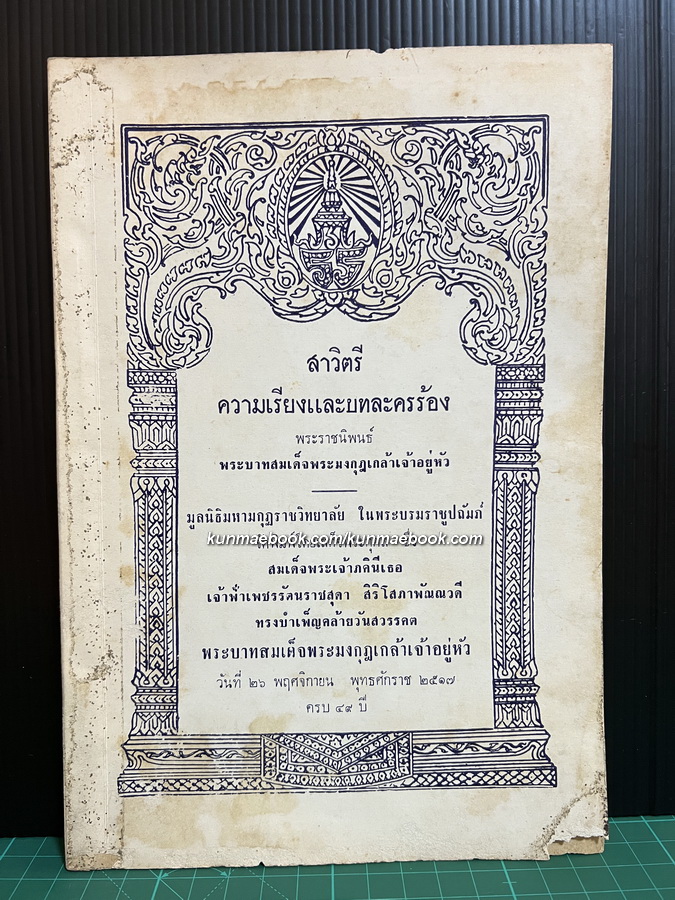 สาวิตรี
ความเรียงและบทละครร้อง
พระราชนิพนธ์
พระบาทสมเด็จพระมงกุฎเกล้าเจ้าอยู่หัว
มูลนิธิมหามกุฏราชวิทยาลัย ในพระบรมราชูปถัมภ์
kunmaebook.com/kunmaebook.com
สมเด็จพระเจ้าภคินีเธอ
เจ้าฟ้าเพชรรัตนราชสุดา สิริโสภาพัณณวดี
ทรงบำเพ็ญคล้ายวันสวรรคต
พระบาทสมเด็จพระมงกุฎเกล้าเจ้าอยู่หัว
วันที่ ๒๖ พฤศจิกายน พุทธศักราช ๒๕๑๗
ครบ ๔๙ ปี